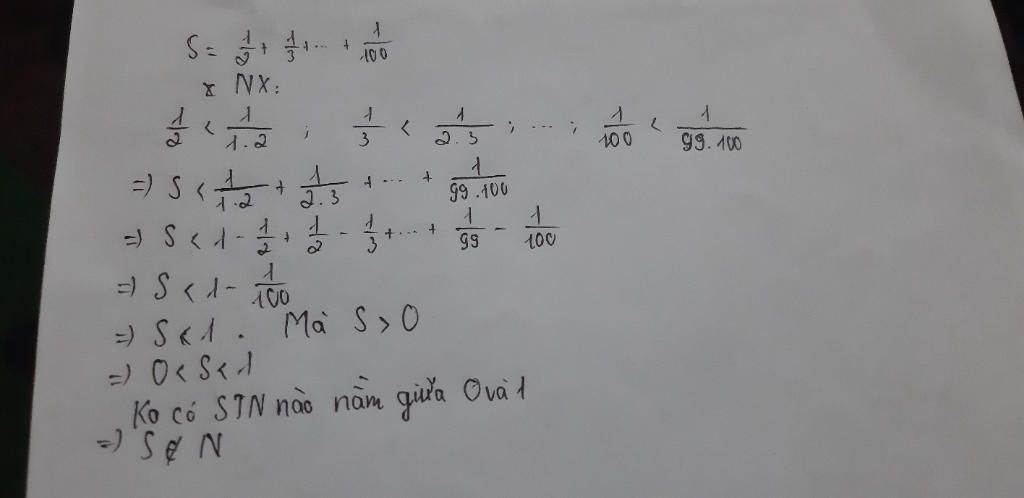 S = 1/2 + 1/3 + ... + 1/100
* NX:
1/2 < 1/1.2 ; 1/3 < 1/2.3 ; ... ; 1/100 < 1/99.100
=) S < 1/1.2 + 1/2.3 + ... + 1/99.100
=) S < 1 - 1/2 + 1/2 - 1/3 + ... + 1/99 - 1/100
=) S < 1 - 1/100
=) S < 1 . Mà S > 0
=) 0 < S < 1
Ko có STN nào nằm giữa 0 và 1
=) S ∉ N